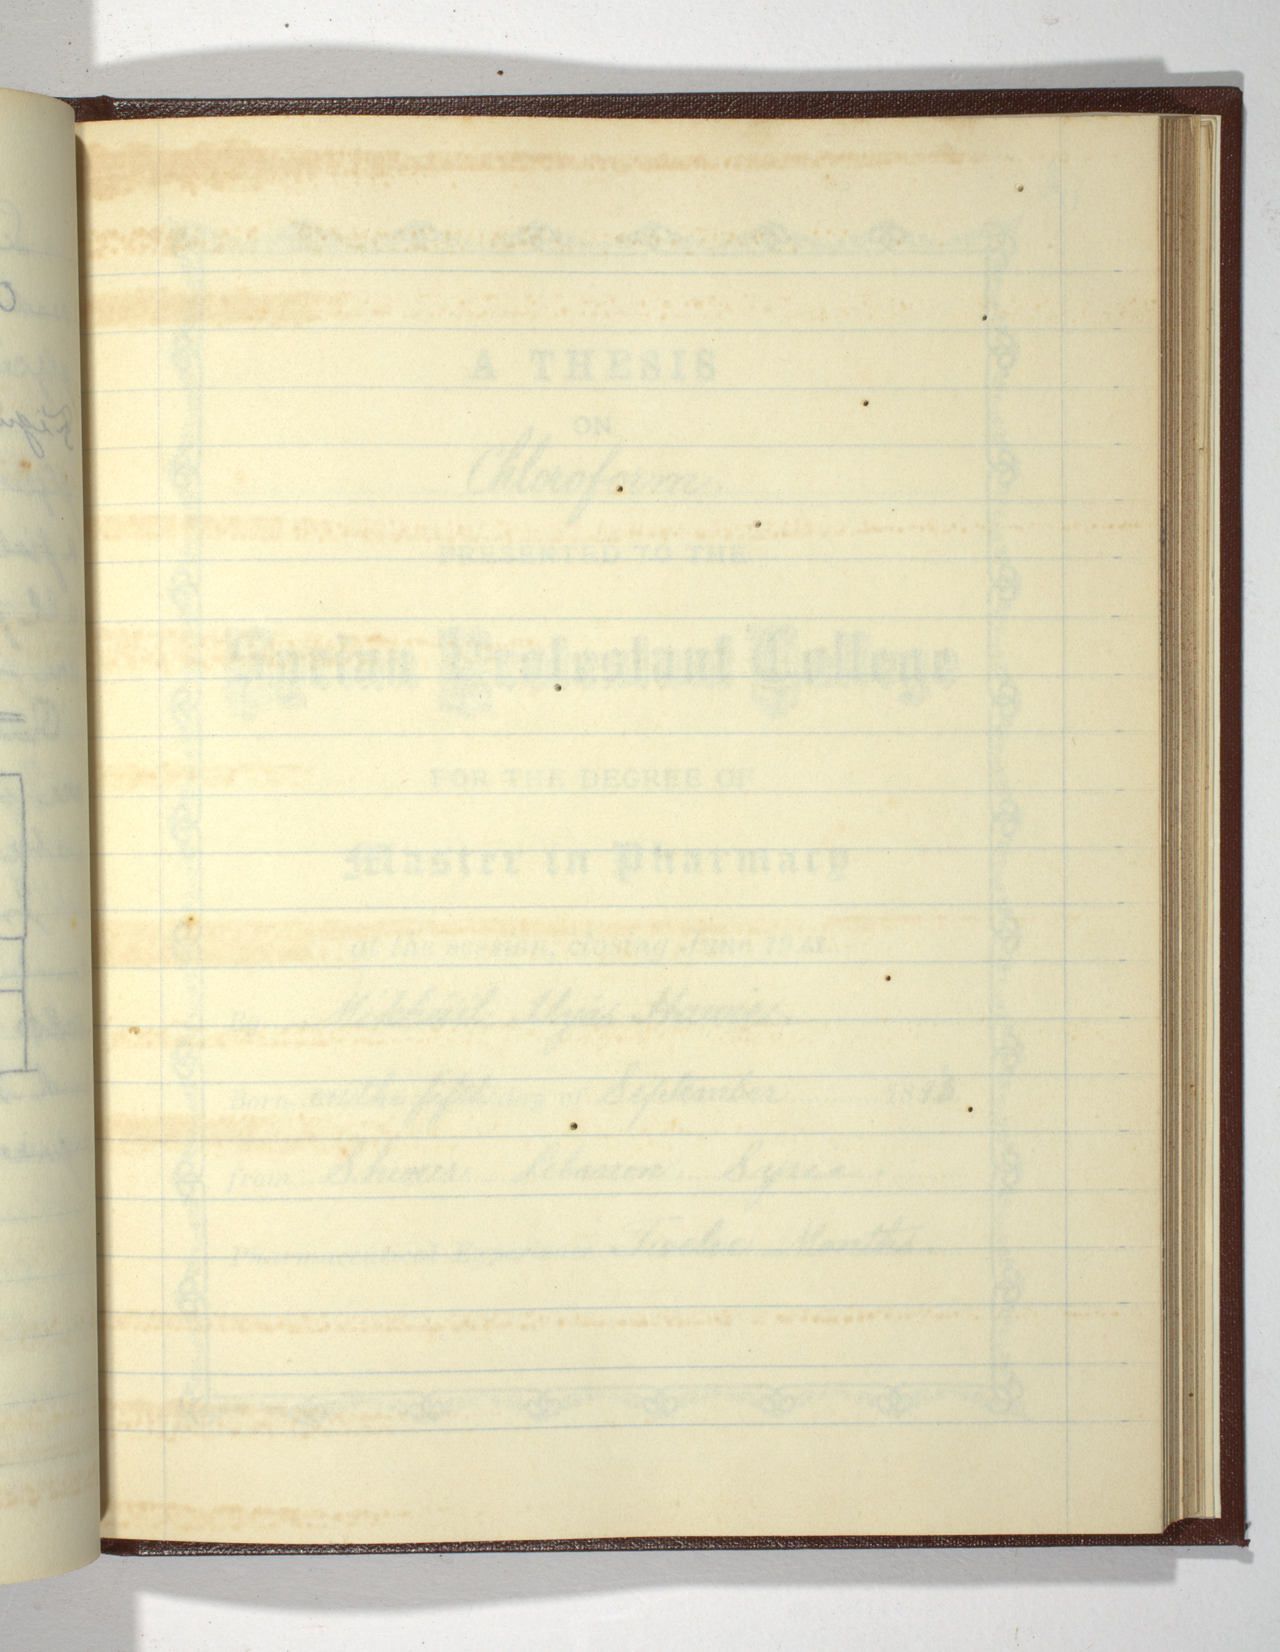 A THESIS
ON
Chloroform
PRESENTED TO THE
Syrian Protestant College
FOR THE DEGREE OF
Master in Pharmacy
at the session, closing June
By
Born on the fifth day of September
from Shweir Lebanon Syria
Pharmaceutical Experience Twelve Months.